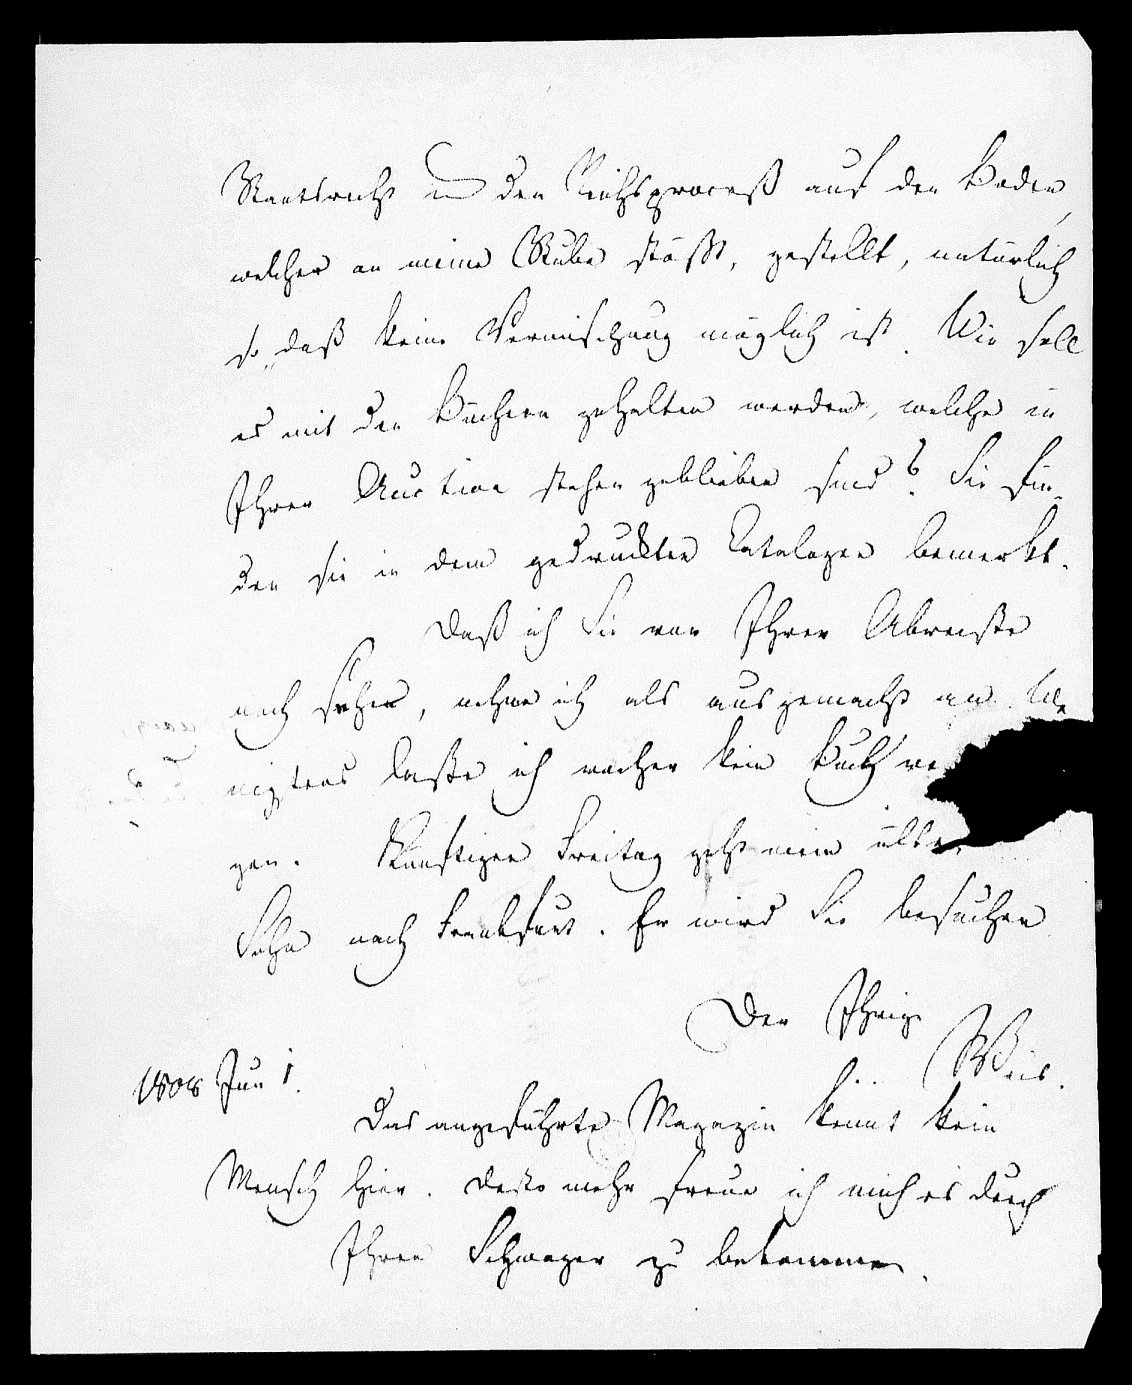 Staatsrecht und den Reichsproceß auf den Boden,
welcher an meine Stube stößt, gestellt, natürlich
so, daß keine Vermischung möglich ist. Wie soll
es mit den Büchern gehalten werden, welche in
Ihrer Auction stehen geblieben sind? Sie fin-
den sie in dem gedruckten Catalogen bemerkt.
Daß ich Sie vor Ihrer Abreiße
noch sehe, nehme ich als ausgemacht an. We
nigstens laße ich vorher kein Buch ve
gen. Künftigen Freitag geht mein älte
Sohn nach Frankfurt. Er wird Sie besuchen
Der Ihrige
Weis.
1808 Jun 1.
Das angeführte Magazin kennt kein
Mensch hier. Desto mehr freue ich mich es durch
Ihren Schwager zu bekommen.